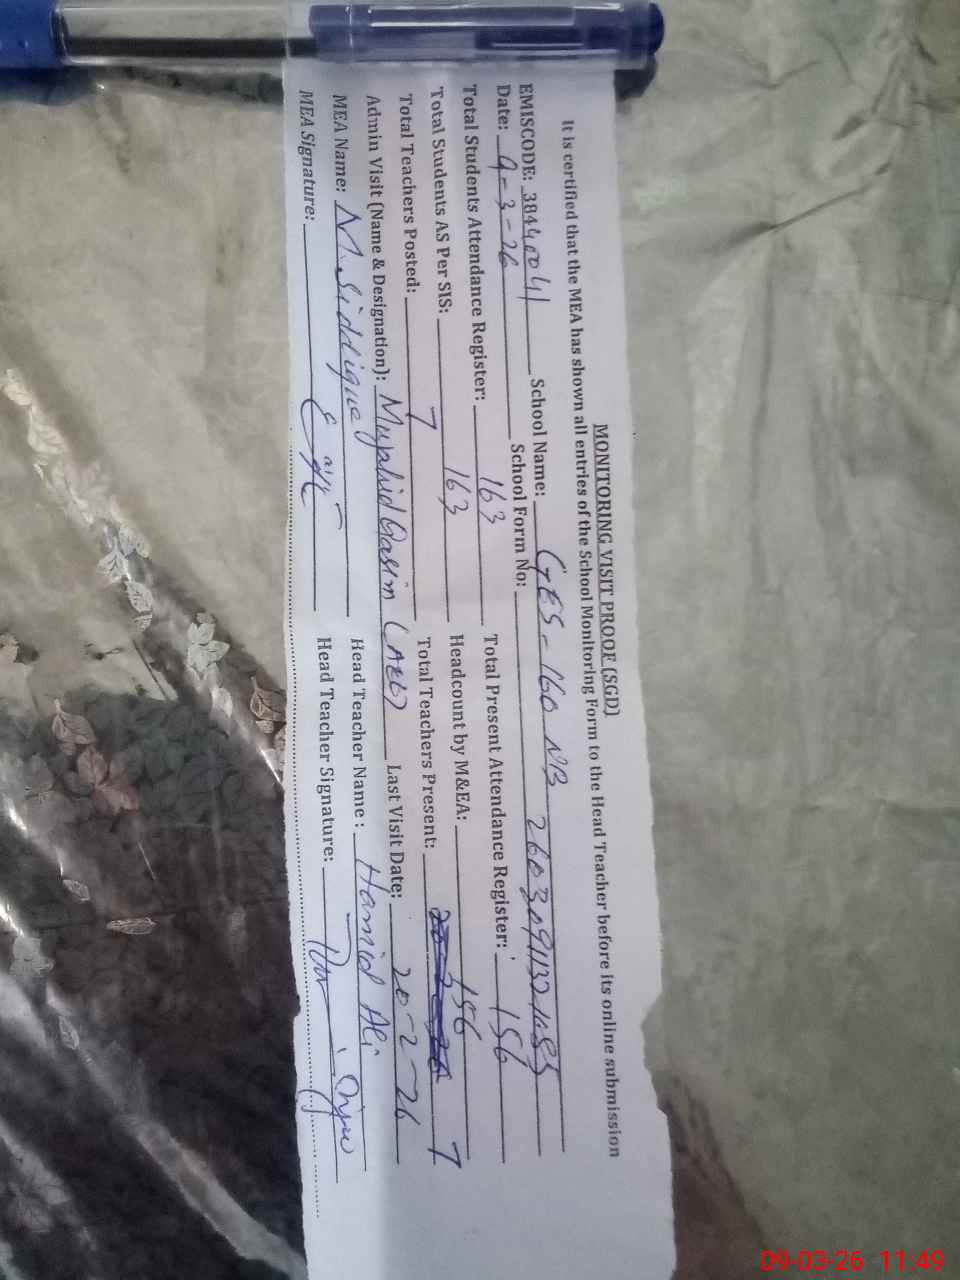 MONITORING VISIT PROOF (SGD)
It is certified that the MEA has shown all entries of the School Monitoring Form to the Head Teacher before its online submission
EMISCODE: 38440041 School Name: GES-160 NB
Date: 9-3-26 School Form No: 26030911321085
Total Students Attendance Register: 163 Total Present Attendance Register: 156
Total Students AS Per SIS: 163 Headcount by M&EA: 156
Total Teachers Posted: 7 Total Teachers Present: 7
Admin Visit (Name & Designation): Mujahid Qasim (AEO) Last Visit Date: 20-2-26
MEA Name: M. Siddique Head Teacher Name : Hamid Ali
MEA Signature: Head Teacher Signature:
09-03-26 11:49